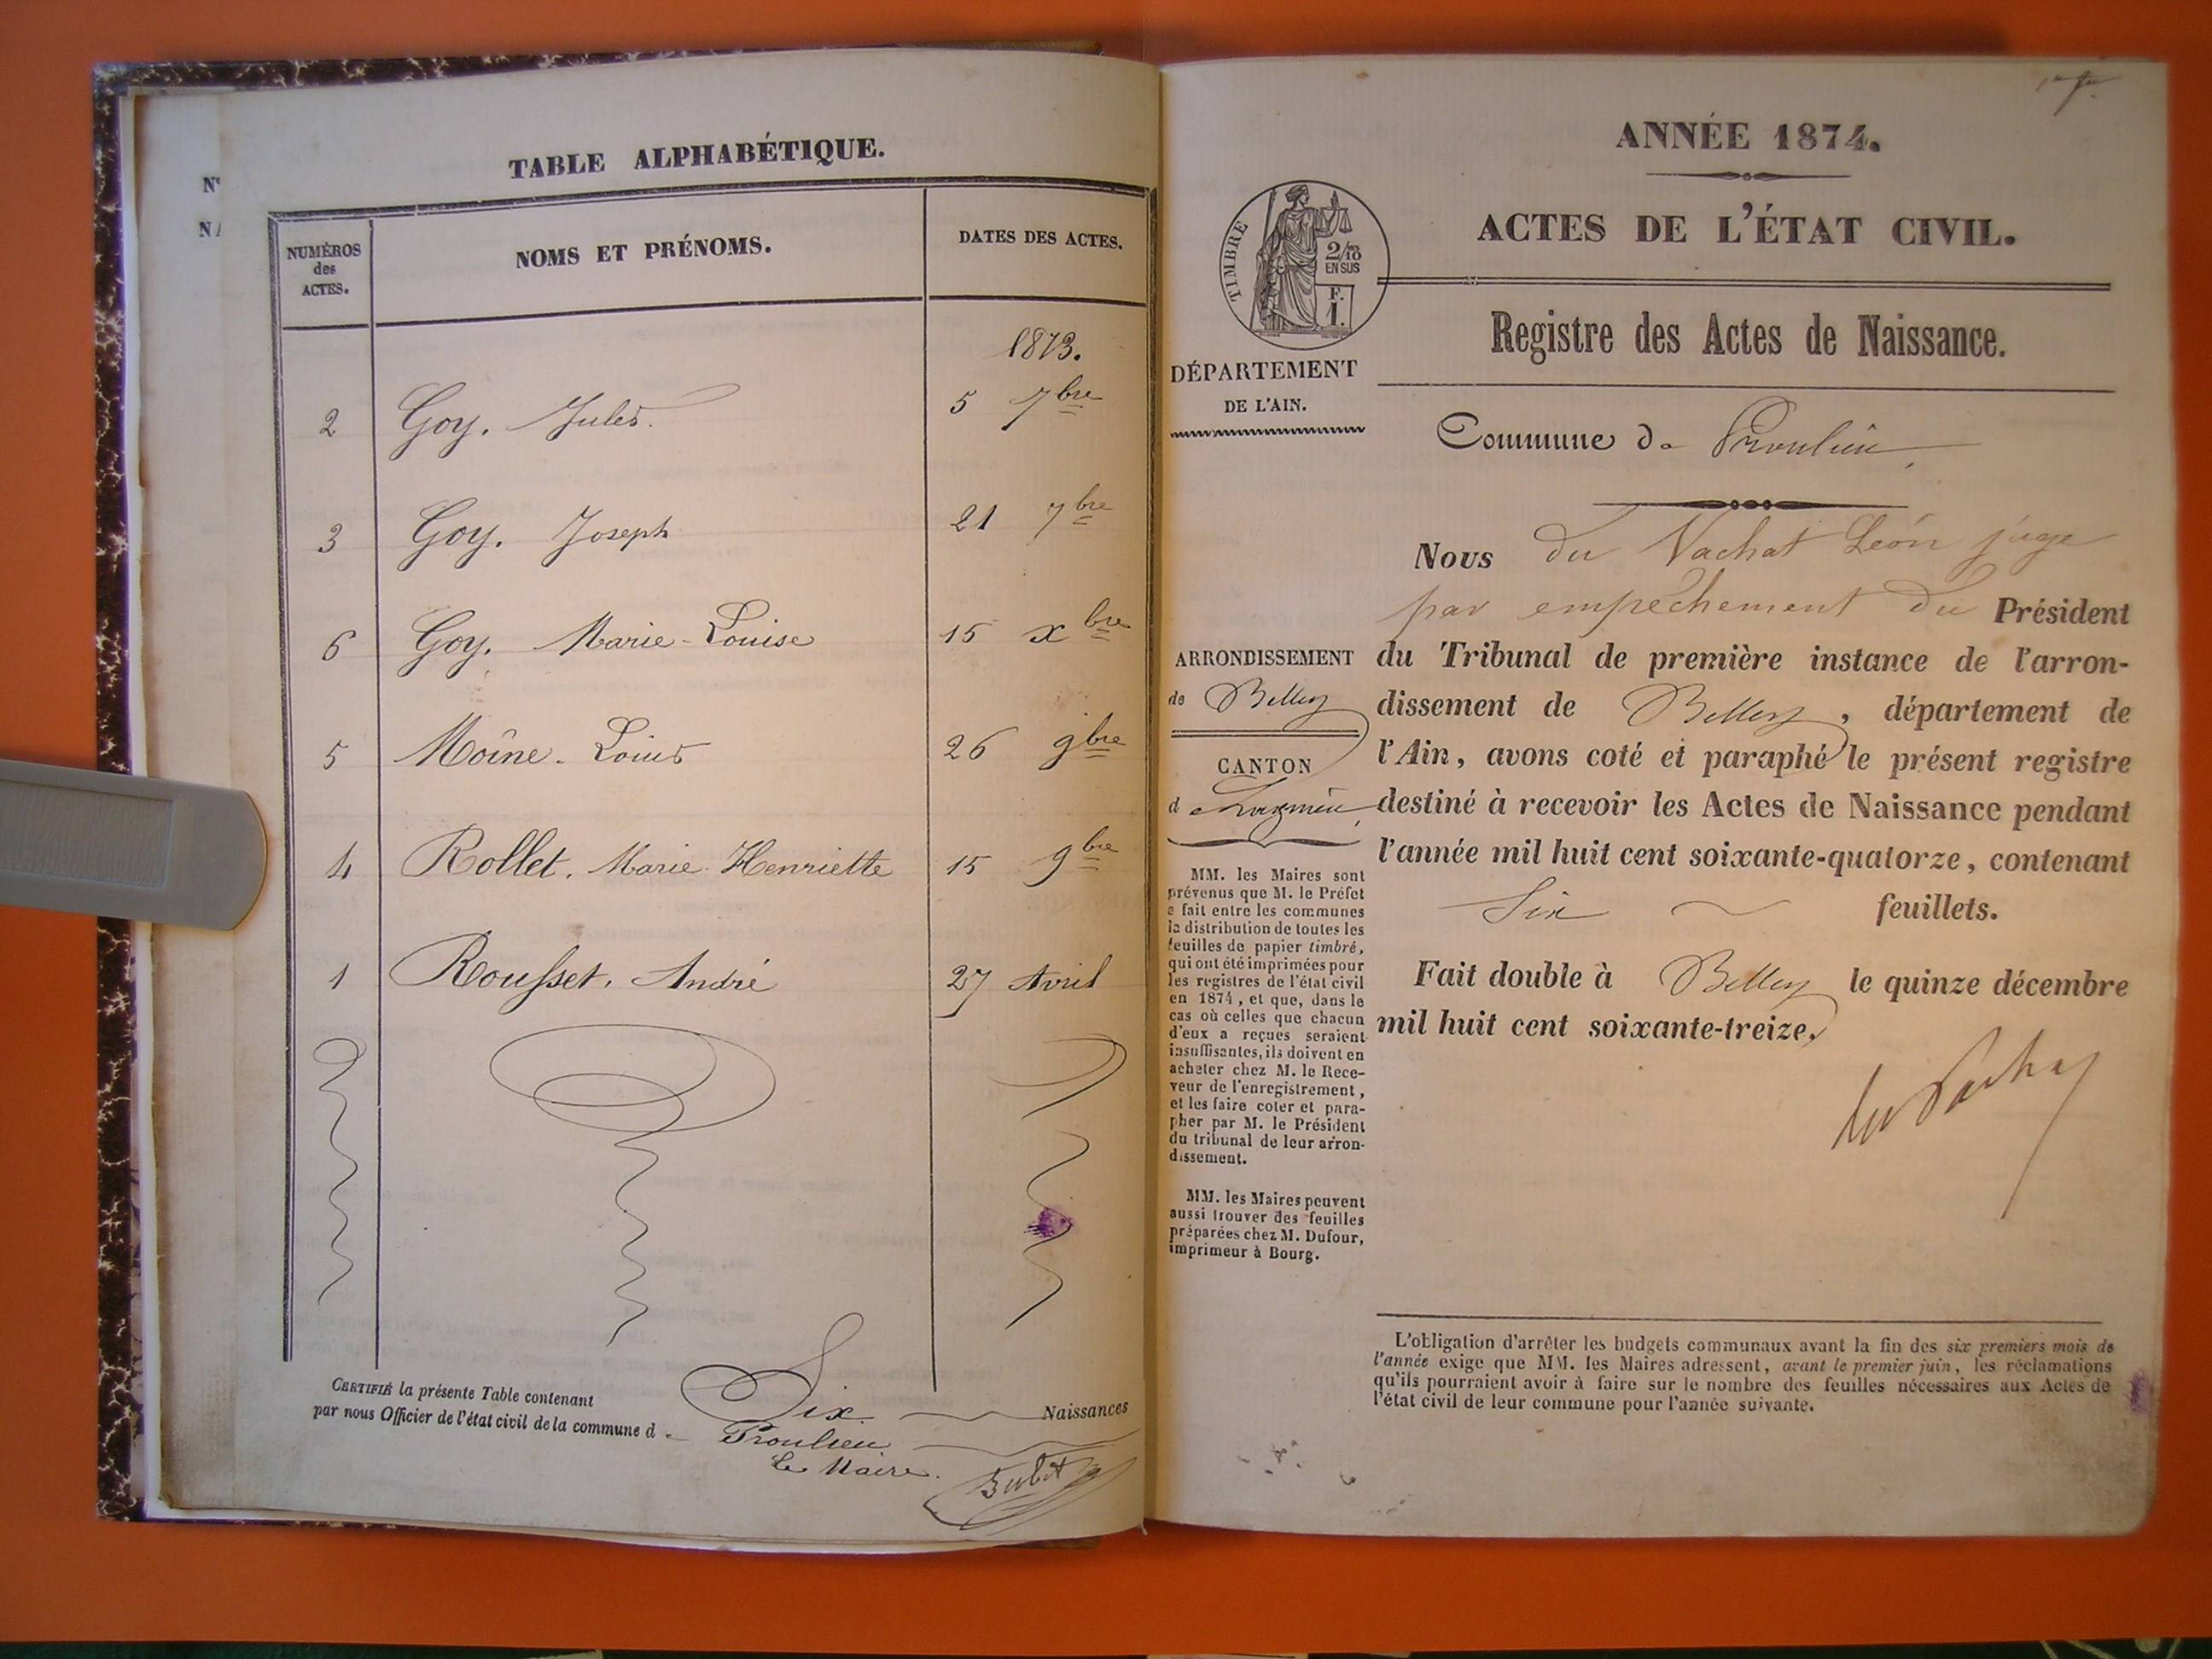 N
N
TABLE ALPHABÉTIQUE.
NUMÉROS
des
ACTES.
NOMS ET PRÉNOMS.
DATES DES ACTES.
1873.
2 Goy. Jules. 5 7bre
3 Goy. Joseph 21 7bre
6 Goy. Marie-Louise 15 xbre
5 Moîne. Loius 26 9bre
4 Rollet. Marie-Henriette 15 9bre
1 Rousset. André 27 Avril
CERTIFIÉ la présente Table contenant Six Naissances
par nous Officier de l'état civil de la commune d Proulieu
Le Maire.
ANNÉE 1874.
ACTES DE L'ÉTAT CIVIL.
TIMBRE
2/10
EN SUS
F.
1.
Registre des Actes de Naissance.
DÉPARTEMENT
DE L'AIN.
Commune de Proulieu
Nous du Vachat Léon juge
par empêchement du Président
du Tribunal de première instance de l'arron-
dissement de Belley, département de
l'Ain, avons coté et paraphé le présent registre
destiné à recevoir les Actes de Naissance pendant
l'année mil huit cent soixante-quatorze, contenant
Six feuillets.
Fait double à Belley le quinze décembre
mil huit cent soixante-treize.
du Vachat
ARRONDISSEMENT
de Belley
CANTON
d Lagnieu
MM. les Maires sont
prévenus que M. le Préfet
a fait entre les communes
la distribution de toutes les
feuilles de papier timbré,
qui ont été imprimées pour
les registres de l'état civil
en 1874, et que, dans le
cas où celles que chacun
d'eux a reçues seraient
insuffisantes, ils doivent en
acheter chez M. le Rece-
veur de l'enregistrement,
et les faire coter et para-
pher par M. le Président
du tribunal de leur arron-
dissement.
MM. les Maires peuvent
aussi trouver des feuilles
préparées chez M. Dufour,
imprimeur à Bourg.
L'obligation d'arrêter les budgets communaux avant la fin des six premiers mois de
l'année exige que MM. les Maires adressent, avant le premier juin, les réclamations
qu'ils pourraient avoir à faire sur le nombre des feuilles nécessaires aux Actes de
l'état civil de leur commune pour l'année suivante.